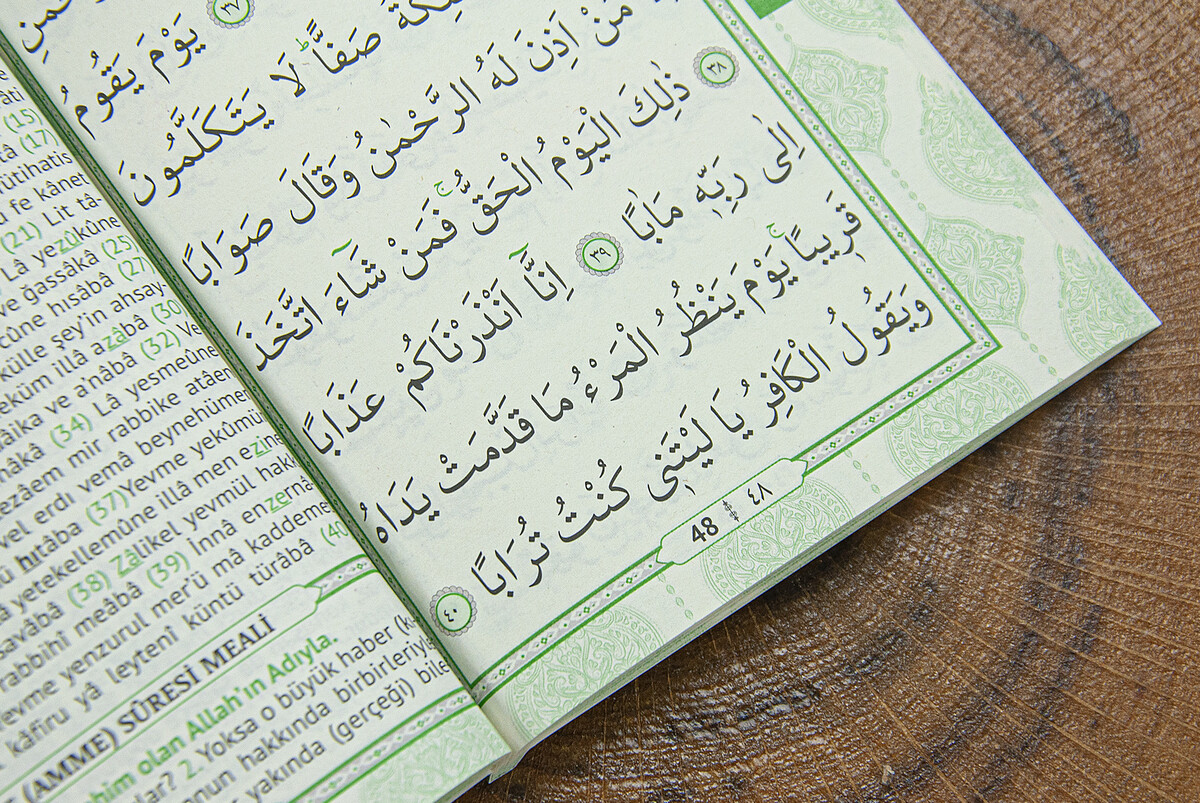 ٣٧ يَوْمَ يَقُومُ
صَفًّاۜ لَا يَتَكَلَّمُونَ
مَنْ اَذِنَ لَهُ الرَّحْمٰنُ وَقَالَ صَوَابًا
٣٨ ذٰلِكَ الْيَوْمُ الْحَقُّۚ فَمَنْ شَٓاءَ اتَّخَذَ
اِلٰى رَبِّه۪ مَاٰبًا ٣٩ اِنَّٓا اَنْذَرْنَاكُمْ عَذَابًا
قَر۪يبًاۚ يَوْمَ يَنْظُرُ الْمَرْءُ مَا قَدَّمَتْ يَدَاهُ
وَيَقُولُ الْكَافِرُ يَا لَيْتَن۪ى كُنْتُ تُرَابًا ٤٠
48 ٤٨
(15)
(17)
fe kânet
(21) Lit tâ-
Lâ yezûkûne
ve ğassâkâ (25)
hısâbâ (27)
külle şey'in ahsay-
illâ azâbâ (30)
ve a'nâbâ (32) Ve
(34) Lâ yesmeûne
mir rabbike atâen
vel erdı vemâ beynehümer
hıtâba (37) Yevme yekûmür
yetekellemûne illâ men ezine
(38) Zâlikel yevmül hakk
rabbihî meâbâ (39) İnnâ enzernâ
yenzurul mer'ü mâ kaddeme
kâfiru yâ leytenî küntü türâbâ (40
(AMME) SÛRESİ MEALİ
olan Allah'ın Adıyla.
2. Yoksa o büyük haber
hakkında birbirleriyle
yakında (gerçeği) bile